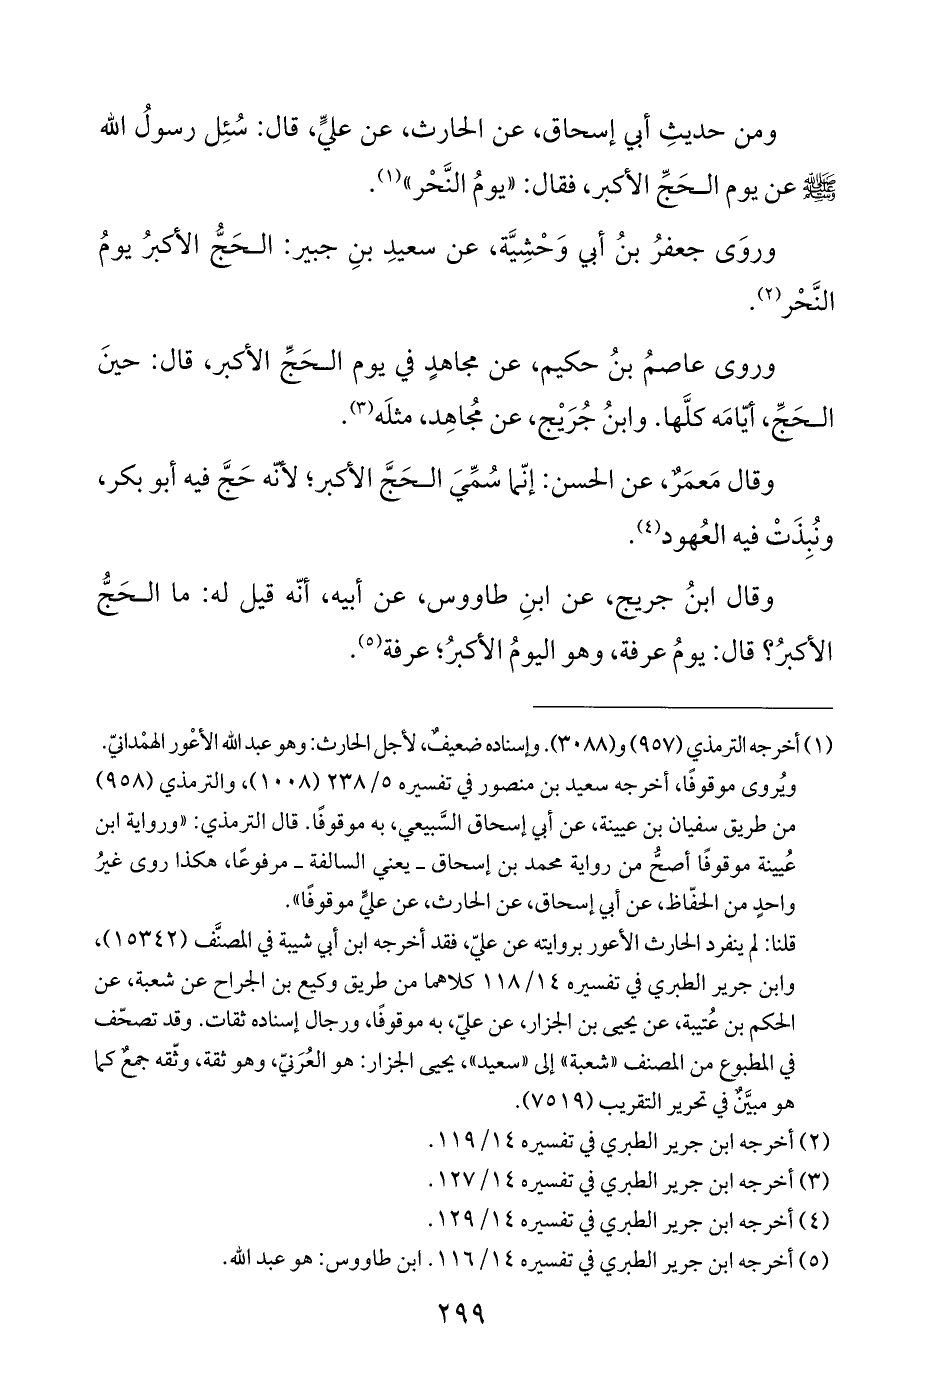 ومن حديثِ أبي إسحاق، عن الحارث، عن عليٍّ، قال: سُئِل رسولُ الله
ﷺ عن يوم الـحَجِّ الأكبر، فقال: «يومُ النَّحْر»(١).
وروَى جعفرُ بنُ أبي وَحْشِيَّة، عن سعيدِ بنِ جبير: الـحَجُّ الأكبرُ يومُ
النَّحْر(٢).
وروى عاصمُ بنُ حكيم، عن مجاهدٍ في يوم الـحَجِّ الأكبر، قال: حينَ
الـحَجِّ، أيّامَه كلَّها. وابنُ جُرَيْج، عن مُجاهِد، مثلَه(٣).
وقال مَعمَرٌ، عن الحسن: إنّما سُمِّيَ الـحَجَّ الأكبر؛ لأنّه حَجَّ فيه أبو بكر،
ونُبِذَتْ فيه العُهود(٤).
وقال ابنُ جريج، عن ابنِ طاووس، عن أبيه، أنّه قيل له: ما الـحَجُّ
الأكبرُ؟ قال: يومُ عرفة، وهو اليومُ الأكبرُ؛ عرفة(٥).
(١) أخرجه الترمذي (٩٥٧) و(٣٠٨٨). وإسناده ضعيفٌ، لأجل الحارث: وهو عبد الله الأعْور الهمْدانيّ.
ويُروى موقوفًا، أخرجه سعيد بن منصور في تفسيره ٥/ ٢٣٨ (١٠٠٨)، والترمذي (٩٥٨)
من طريق سفيان بن عيينة، عن أبي إسحاق السَّبيعي، به موقوفًا. قال الترمذي: «ورواية ابن
عُيينة موقوفًا أصحُّ من رواية محمد بن إسحاق ـ يعني السالفة ـ مرفوعًا، هكذا روى غيرُ
واحدٍ من الحفّاظ، عن أبي إسحاق، عن الحارث، عن عليٍّ موقوفًا».
قلنا: لم ينفرد الحارث الأعور بروايته عن عليّ، فقد أخرجه ابن أبي شيبة في المصنَّف (١٥٣٤٢)،
وابن جرير الطبري في تفسيره ١٤/ ١١٨ كلاهما من طريق وكيع بن الجراح عن شعبة، عن
الحكم بن عُتيبة، عن يحيى بن الجزار، عن عليّ، به موقوفًا، ورجال إسناده ثقات. وقد تصحّف
في المطبوع من المصنف «شعبة» إلى «سعيد»، يحيى الجزار: هو العُرَنيّ، وهو ثقة، وثّقه جمعٌ كما
هو مبيَّنٌ في تحرير التقريب (٧٥١٩).
(٢) أخرجه ابن جرير الطبري في تفسيره ١٤/ ١١٩.
(٣) أخرجه ابن جرير الطبري في تفسيره ١٤/ ١٢٧.
(٤) أخرجه ابن جرير الطبري في تفسيره ١٤/ ١٢٩.
(٥) أخرجه ابن جرير الطبري في تفسيره ١٤/ ١١٦. ابن طاووس: هو عبد الله.
٢٩٩